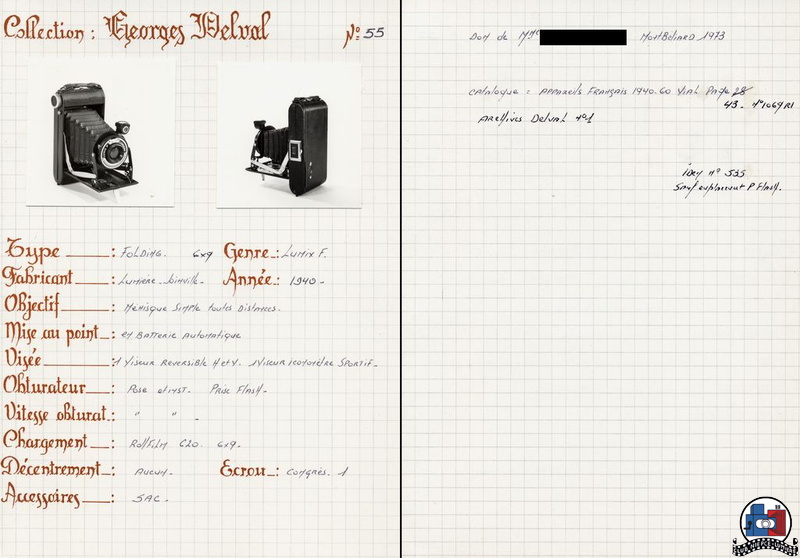 Collection : Georges Delval No: 55
Type : FOLDING. 6x9 Genre : Lumix F.
Fabricant : Lumière Joinville. Année : 1940.
Objectif : Ménisque Simple toutes Distances.
Mise au point : et Batterie Automatique
Visée : 1 Viseur Reversible H et V. 1 Viseur iconomètre Sportif.
Obturateur : Pose et inst. Prise Flash.
Vitesse obturat. : " " .
Chargement : Rollfilm 620. 6x9.
Décentrement : AUCUN. Ecrou : Congrès. 1
Accessoires : SAC.
Don de Mme Montbéliard 1973
Catalogue : Appareils Français 1940.60 Vial Page 28
43. N° 1069 R1
Archives Delval N°1
idem n° 535
Sauf emplacement P. Flash.